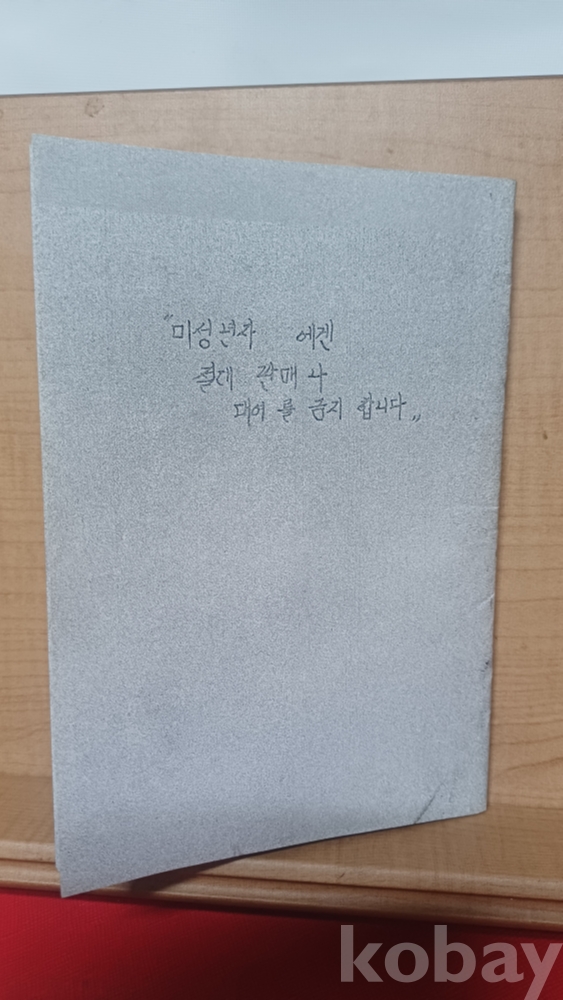 "미성년자 에겐
절대 판매나
대여를 금지 합니다"
kobay